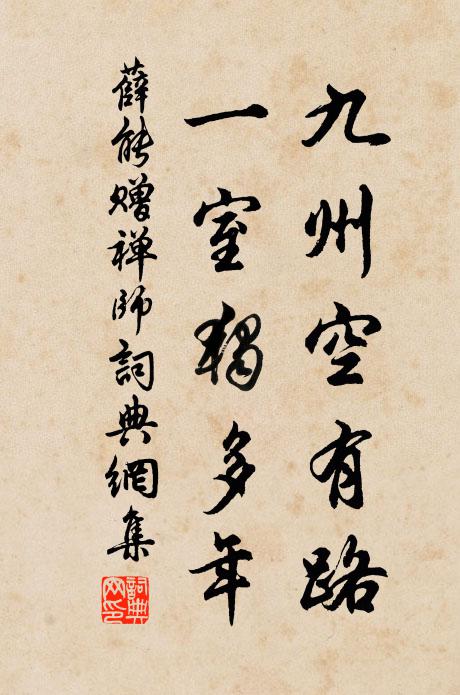 九州空有路
一室獨多年
薛能贈禅師詞典網集
詞典網印